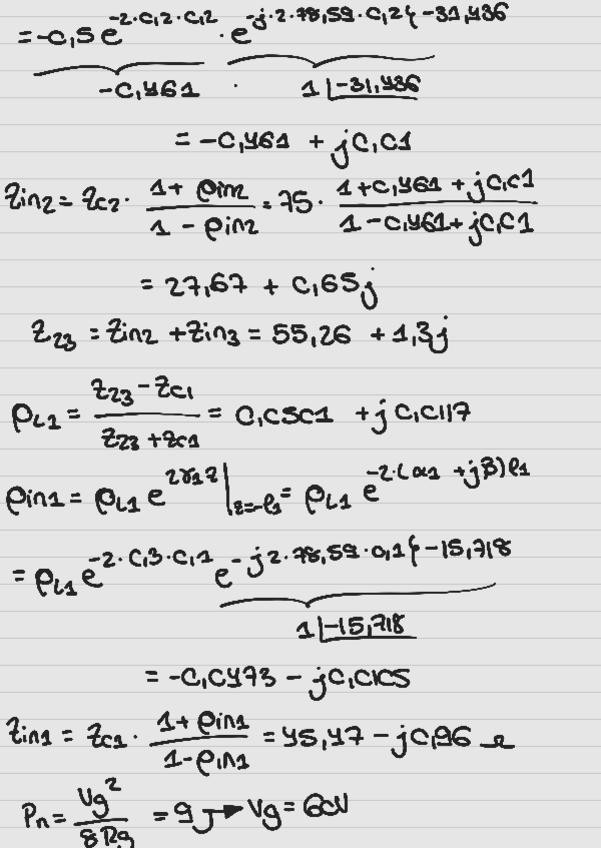 = -0,5 e^{-2·0,2·0,2} · e^{-j·2·78,59·0,2} {-31,436
-0,461 · 1 |-31,436
= -0,461 + j0,01
Zin2 = Zc2 · (1 + ρin2)/(1 - ρin2) = 75 · (1 + 0,461 + j0,01)/(1 - 0,461 + j0,01)
= 27,67 + 0,65j
Z23 = Zin2 + Zin3 = 55,26 + 1,3j
ρL1 = (Z23 - Zc1)/(Z23 + Zc1) = 0,0501 + j0,0117
ρin1 = ρL1 e^{2γ1z}|z=-ℓ1 = ρL1 e^{-2·(α1 + jβ)ℓ1}
= ρL1 e^{-2·0,3·0,1} e^{-j2·78,59·0,1} {-15,718
1 |-15,718
= -0,0473 - j0,0105
Zin1 = Zc1 · (1 + ρin1)/(1 - ρin1) = 45,47 - j0,96 Ω
Pn = Vg²/8Rg = 9 J → Vg = 60V